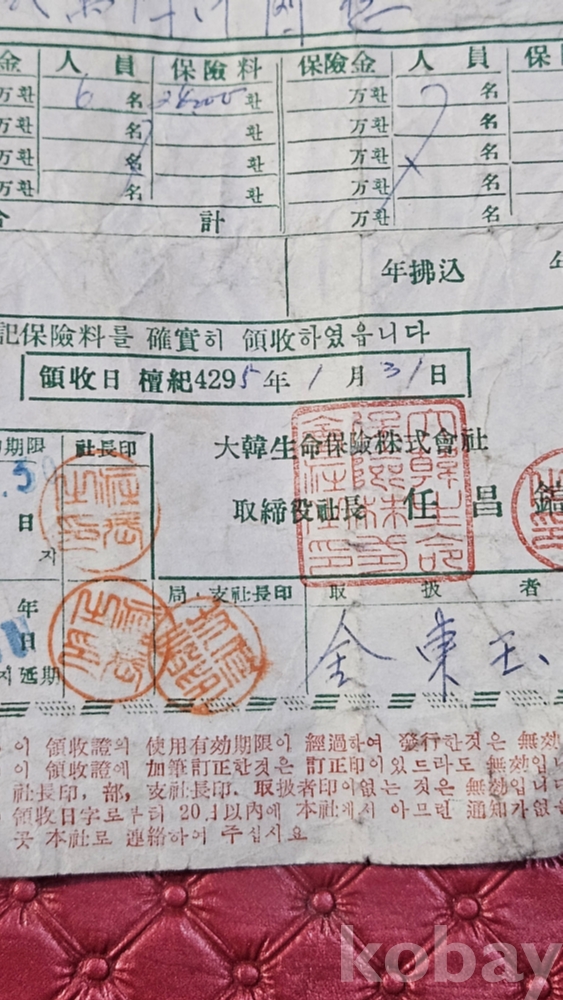 金 人員 保險料 保險金 人員 保
万환 6 名 환 万환 名
万환 名 환 万환 名
万환 名 환 万환 名
万환 名 환 万환 名
合 計 万환 名
年拂込 年
記保險料를 確實히 領收하였읍니다
領收日 檀紀4295年 1月 31日
期限 社長印
大韓生命保險株式會社
日 取締役社長 任昌鎬
지
年 局, 支社長印 取扱者
日
지延期 金東玉
이 領收證의 使用有効期限이 經過하여 發行한것은 無効
이 領收證에 加筆訂正한것은 訂正印이있드라도 無効입니
社長印, 部, 支社長印, 取扱者印이없는 것은 無効입니다
領收日字로부터 20日以內에 本社에서 아므런 通知가없을
곳 本社로 連絡하여 주십시요
kobay